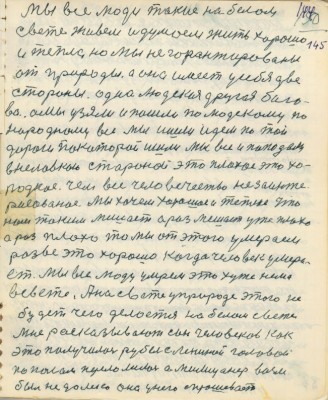 144
145
Мы все люди такие на белом
свете живем и думаем жить хорошо
и тепло, но мы не горантированы
от природы. а она имеет у себя две
стороны. одна людская другая баго-
ва. а мы узяли и пошли по людскому по
народному все мы ишли идем по той
дороги по которой ишли мы все и попадали
в неловкою староной это плохое это хо-
лодное. чем все человечество не заинте-
рисованое мы хочем хорошое и тёплое это
нам такем мешает а раз мешает уже плохо
а раз плохо то мы от этого умераем
разве это хорошо когда человек умера-
ет. Мы все люди умрем это хуже нема
в свете, А на свете у природе этого не
будет чего делается на белом свете
мне рассказывают сын человеков как
это получилось рубель с лениной головой
попалам а милицианер вам
был не далеко она у него спрошевает